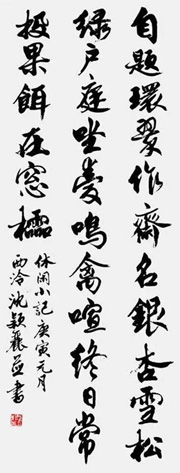 自題環翠作齋名銀杏雪松
綠戶庭坐愛鳴禽喧終日常
投果餌在窗櫺
休閑小記庚寅元月
西泠沈穎麗並書